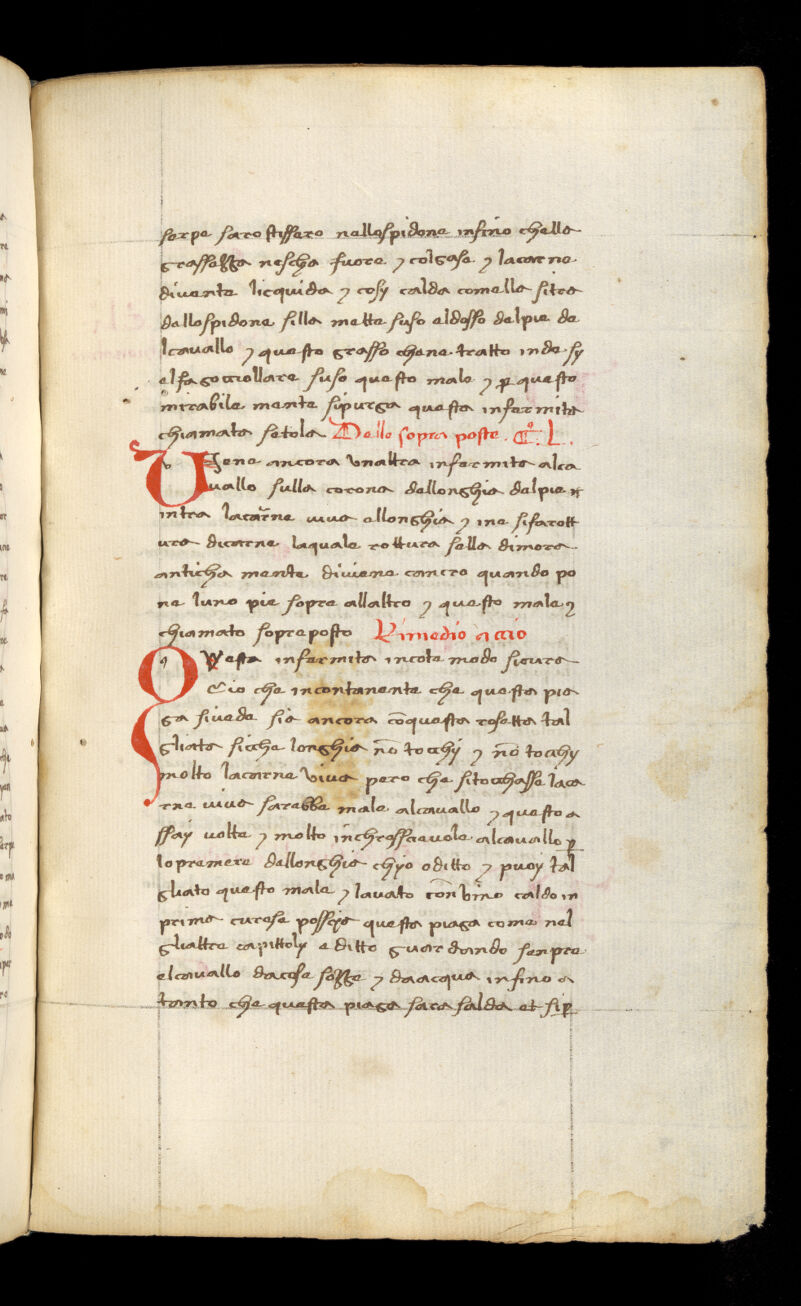 serpe saro stissero nello spidone infino chella
grassezza nescha fuore ⁊ colgase ⁊ lacarne
diventa licquida ⁊ cosy calda comella sitra
dallospidone silla mette suso aldosso delpie de
lcavallo ⁊ questo grasso chene tratto inde sy
el fa gocciollare suso questo male ⁊ ꝑ questo
mirabile mente sipurga questa infermita
chiamata setola Dello sopra poste. C.º L.
Viene ancora unaltra infermita alca
vallo sulla corona dellonghia delpie
intra lacarne viva ellonghia ⁊ ine sifa rott
ura dicarne laquale rottura sella dimora
anticha mente diviene cancro quando po
ne luno pie sopra allaltro ⁊ questo male
chiamato sopraposto Rimedio accio
Questa infermita incota modo sicura
Cio che incontanente che questa pia
ga siveda sia ancora cōquesta rosetta tal
gliata sicche longhia nō tochy ⁊ nō tochy
molto lacarne viva pero che sitochasse laca
rne viva sarebbe male alcavallo ⁊ questo a
ssay volte ⁊ molto īchressaevole alcavallo ꝑ
lopremere dellonghia chyo oditto ⁊ puoy tal
gliato questo male ⁊ lavato con vino caldo in
prima curasa possia questa piaga come nel
gli altre capittoly e ditto guardando senpre
elcavallo dacosa sozza ⁊ daacqua infino a
tanto che questa piaga sara salda et si ꝑ